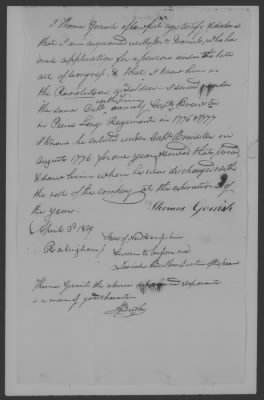 I Thomas Gerrish of lawful age testify & declare
that I am acquainted with Jno Daniels, who has
made application for a pension under the late
act of Congress, & that I knew him in
the Revolutionary I served under
the same Capt with him namely Capt Brewster
in Peirse Long Regiment in 1776 & 1777
I know he enlisted under Capt Brewster in
August 1776 for one year, served that period,
& saw him when he was discharged with
the rest of the company at the expiration of
the year. Thomas Gerrish
April 8 1829 State of New Hampshire
Rockingham Sworn to before me
Justice of the peace
Thomas Gerrish the above deponent
is a man of good character